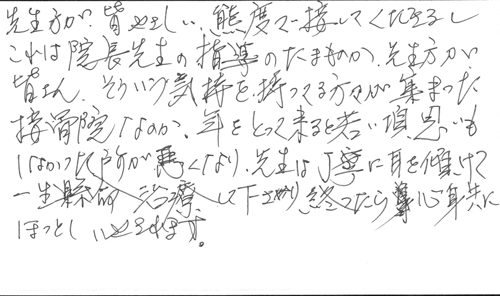 先生方が、皆やさしい、態度で接してくださるし
これは院長先生の指導のたまものか、先生方が
皆さん、そういう気持を、持ってる方々が集まった
接骨院なのか、年をとって来ると若い頃思いも
しなかった所が悪くなり、先生は丁寧に耳を傾けて
一生懸命治療して下さり、終ったら心身共に
ほっとし